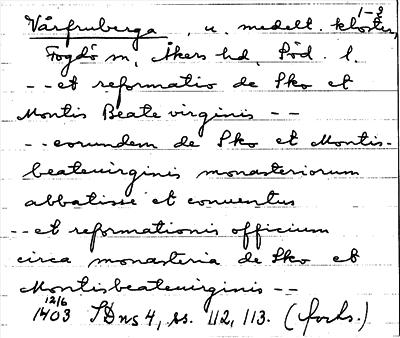 1-3
Vårfruberga, u. medelt. kloster,
Fogdö sn, Åkers hd, Söd. l.
-- et reformatio de Sko et
Montis Beate virginis --
-- eorundem de Sko et Montis-
beatevirginis monasteriorum
abbatisse et conventus
-- et reformationis officium
circa monasteria de Sko et
Montisbeatevirginis --
12/6
1403 SDns 4, ss. 112, 113. (forts.)